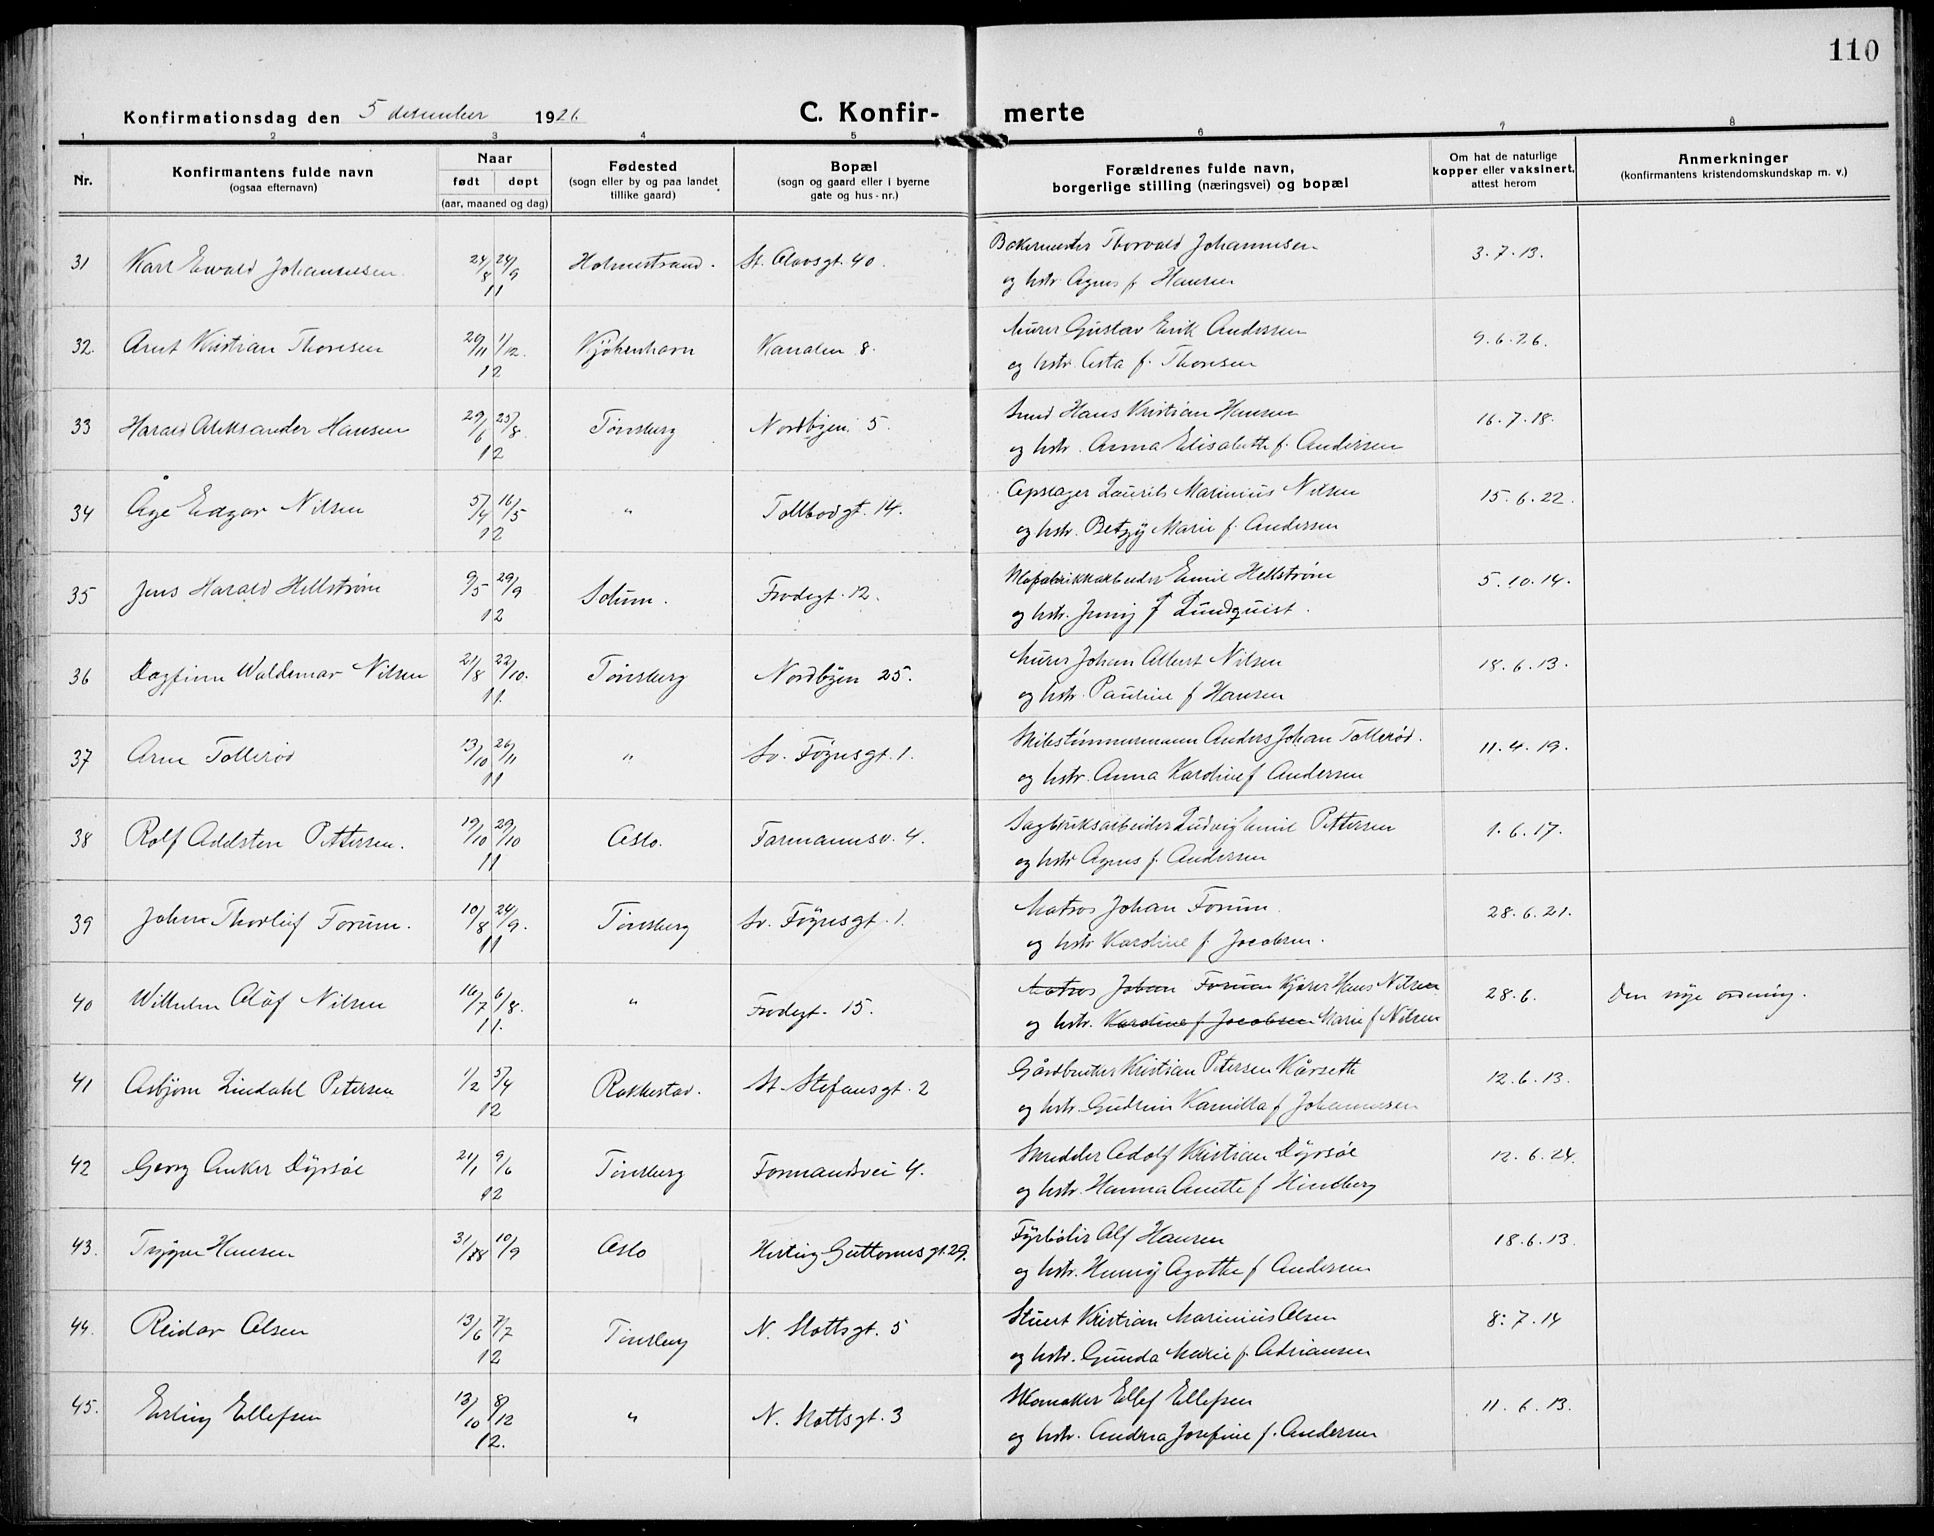 110
Konfirmationsdag den 5 desember 1926
C. Konfir- merte
1 2 3 4 5 6 7 8
Nr.
Konfirmantens fulde navn
(ogsaa efternavn)
Naar
født døpt
(aar, maaned og dag)
Fødested
(sogn eller by og paa landet
tillike gaard)
Bopæl
(sogn og gaard eller i byerne
gate og hus-nr.)
Forældrenes fulde navn,
borgerlige stilling (næringsvei) og bopæl
Om hat de naturlige
kopper eller vaksinert,
attest herom
Anmerkninger
(konfirmantens kristendomskundskap m. v.)
31 Karl Ewald Johannesen 24/8 24/9 Holmestrand. St. Olavsgt. 40. Bakermester Thorvald Johannesen 3.7.13.
11 og hstr. Agnes f. Hansen
32. Arnt Kristian Thoresen 29/11 1/12. Kjøbenhavn Kanalen 8. Murer Gustav Erik Andersen 9.6.26.
12 og hstr. Asta f. Thoresen
33 Harald Aleksander Hansen 29/6 25/8. Tønsberg Nordbyen 5. Smed Hans Kristian Hansen 16.7.18.
12 og hstr. Anna Elisabeth f. Andersen
34 Åge Edgar Nilsen 5/4 16/5 " Tollbodgt. 14. Opslager Laurits Marinius Nilsen 15.6.22.
12 og hstr. Betzy Marie f. Andersen
35 Jens Harald Hellstrøm 9/5 29/9 Solum. Frodegt. 12. Emil Hellstrøm 5.10.14.
12 og hstr. Jenny f Lundquist.
36 Dagfinn Waldemar Nilsen 21/8 22/10. Tønsberg Nordbyen 25. Murer Johan Albert Nilsen 18.6.13.
11. og hstr. Pauline f Hansen
37 Arne Tollerød 13/10 26/11 " Sv. Føynsgt. 1. Skibstømmermann Anders Johan Tollerød. 11.4.19.
11 og hstr. Anna Karoline f Andersen
38 Rolf Adelsten Pettersen. 19/10 29/10 Oslo. Farmannsv. 4. Sagbruksarbeider Ludvig Emil Pettersen 1.6.17.
11 og hstr Agnes f. Andersen
39 Johan Thorleif Forum. 10/8 24/9. Tønsberg Sv. Føynsgt. 1. Matros Johan Forum. 28.6.21.
11 og hstr Karoline f. Jacobsen.
40 Wilhelm Olaf Nilsen 16/7 6/8. " Frodegt. 15. Matros Johan Forum Kjører Hans Nilsen 28.6. Den nye ordning.
11. og hstr. Karoline f. Jacobsen Marie f Nilsen
41 Asbjørn Lindahl Petersen 1/2 5/4 Rakkestad. St. Stefansgt. 2 Gårdbruker Kristian Petersen Kårseth 12.6.13.
12 og hstr. Gudrun Kamilla f Johannessen
42 Georg Anker Dyrsøe 21/1 9/6 Tønsberg Formandsvei 4. Skredder Adolf Kristian Dyrsøe 12.6.24.
12 og hstr. Hanna Anette f Hindberg
43. Trygve Hansen 31/8 10/9 Oslo Hertug Guttormsgt. 29. Fyrbøter Alf Hansen 18.6.13.
og hstr. Henny Agathe f Andersen
44. Reidar Olsen 13/6 7/7 Tønsberg N. Slottsgt. 5 Stuert Kristian Marinius Olsen 8.7.14
12 og hstr. Gunda Marie f. Adriansen
45. Erling Ellefsen 13/10 8/12 " N. Slottsgt. 3 Skomaker Ellef Ellefsen 11.6.13.
12. og hstr. Andrea Josefine f. Andersen